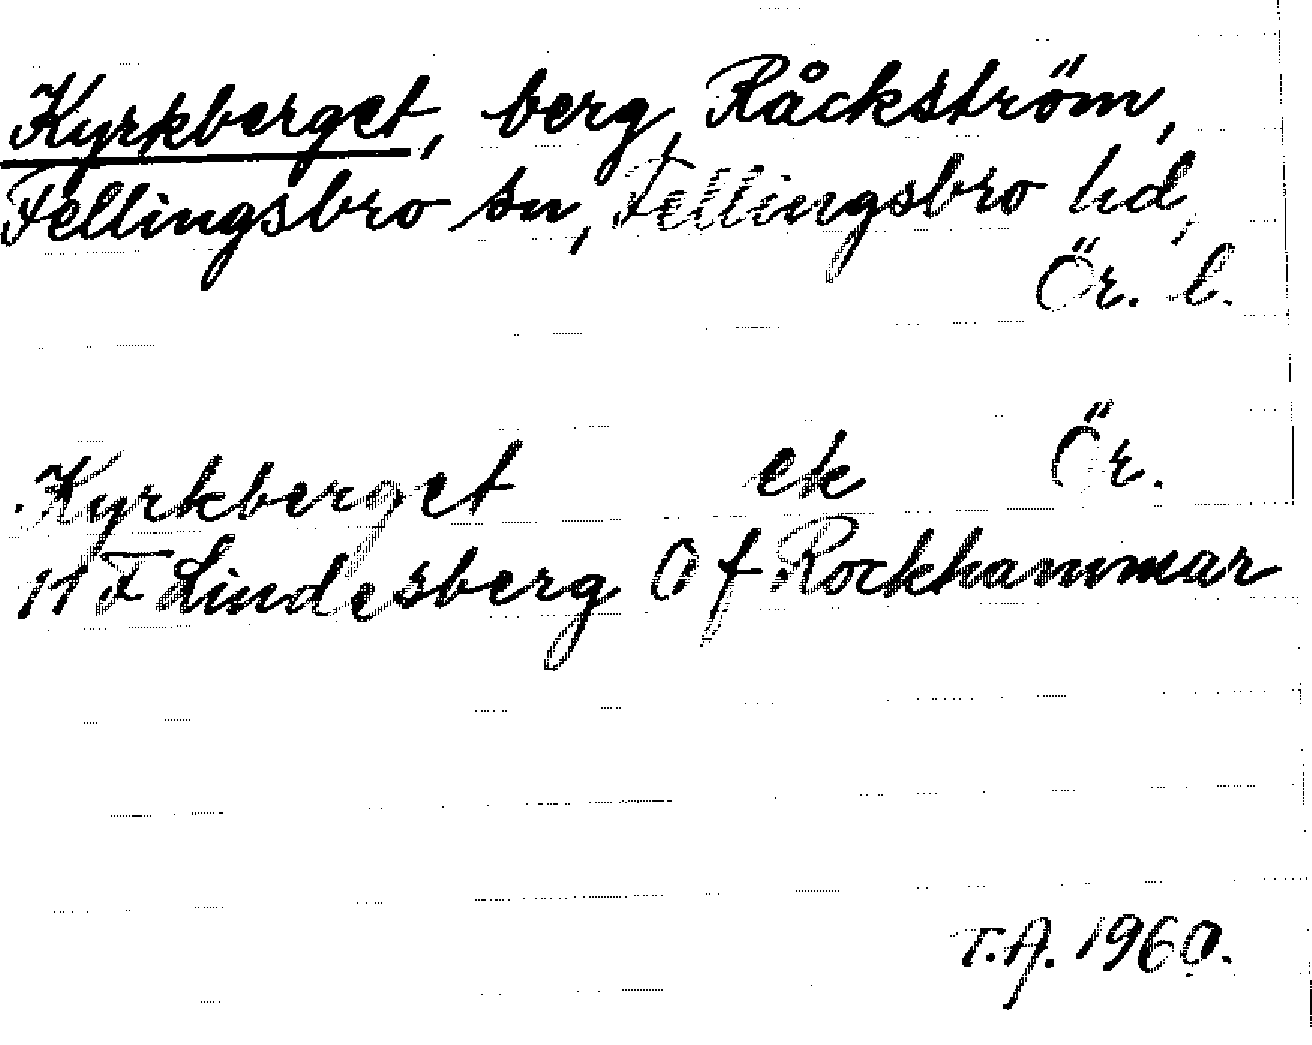 Kyrkberget, berg, Råckström,
Fellingsbro sn, Fellingsbro hd,
Ör. l.
Kyrkberget ek Ör.
11 F Lindesberg 0 f Rockhammar
T.A. 1960.